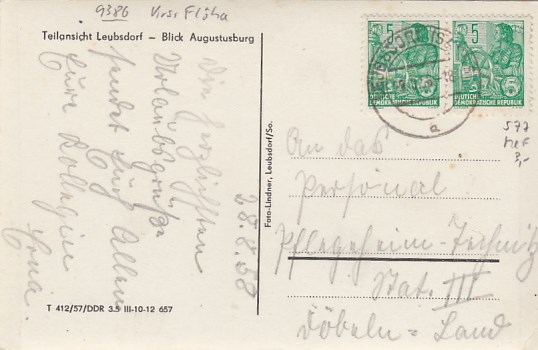 9386 Krs. Flöha
Teilansicht Leubsdorf — Blick Augustusburg
28.8.58
Die herzlichsten
Urlaubsgrüße
sendet Euch Allen
Eure Kollegin
Erna.
T 412/57/DDR 3.5 III-10-12 657
Foto-Lindner, Leubsdorf/Sa.
5
DEUTSCHE
DEMOKRATISCHE REPUBLIK
5
DEUTSCHE
DEMOKRATISCHE REPUBLIK
a
577
3,-
An das
Personal
Pflegeheim-Technitz
Stat. III
Döbeln-Land